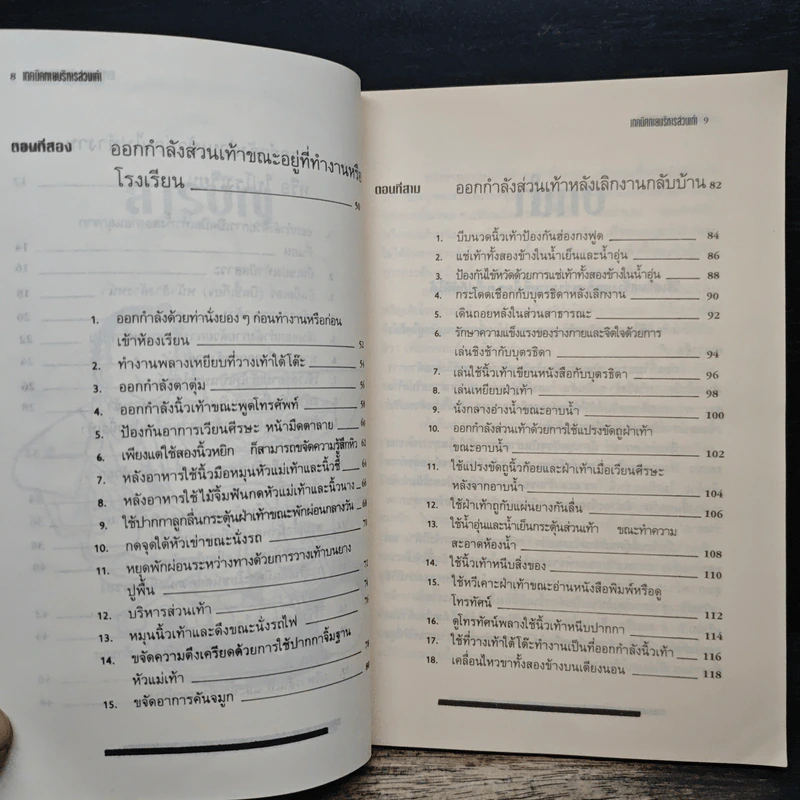 8 เทคนิคกายบริหารส่วนเท้า
ตอนที่สอง ออกกำลังส่วนเท้าขณะอยู่ที่ทำงานหรือ
โรงเรียน 50
1. ออกกำลังด้วยท่านั่งยอง ๆ ก่อนทำงานหรือก่อน
เข้าห้องเรียน 52
2. ทำงานพลางเหยียบที่วางเท้าใต้โต๊ะ
3. ออกกำลังตาตุ่ม
4. ออกกำลังนิ้วเท้าขณะพูดโทรศัพท์
5. ป้องกันอาการเวียนศีรษะ หน้ามืดตาลาย
6. เพียงแต่ใช้สองนิ้วหยิก ก็สามารถขจัดความรู้สึกหิว
7. หลังอาหารใช้นิ้วมือหมุนหัวแม่เท้าและนิ้วชี้
8. หลังอาหารใช้ไม้จิ้มฟันกดหัวแม่เท้าและนิ้วนาง
9. ใช้ปากกาลูกลื่นกระตุ้นฝ่าเท้าขณะพักผ่อนกลางวัน
10. กดจุดใต้หัวเข่าขณะนั่งรถ
11. หยุดพักผ่อนระหว่างทางด้วยการวางเท้าบนยาง
ปูพื้น
12. บริหารส่วนเท้า
13. หมุนนิ้วเท้าและดึงขณะนั่งรถไฟ
14. ขจัดความตึงเครียดด้วยการใช้ปากกาจิ้มฐาน
หัวแม่เท้า
15. ขจัดอาการคันจมูก
เทคนิคกายบริหารส่วนเท้า 9
ตอนที่สาม ออกกำลังส่วนเท้าหลังเลิกงานกลับบ้าน 82
1. บีบนวดนิ้วเท้าป้องกันฮ่องกงฟุต 84
2. แช่เท้าทั้งสองข้างในน้ำเย็นและน้ำอุ่น 86
3. ป้องกันไข้หวัดด้วยการแช่เท้าทั้งสองข้างในน้ำอุ่น 88
4. กระโดดเชือกกับบุตรธิดาหลังเลิกงาน 90
5. เดินถอยหลังในส่วนสาธารณะ 92
6. รักษาความแข็งแรงของร่างกายและจิตใจด้วยการ
เล่นชิงช้ากับบุตรธิดา 94
7. เล่นใช้นิ้วเท้าเขียนหนังสือกับบุตรธิดา 96
8. เล่นเหยียบฝ่าเท้า 98
9. นั่งกลางอ่างน้ำขณะอาบน้ำ 100
10. ออกกำลังส่วนเท้าด้วยการใช้แปรงขัดถูฝ่าเท้า
ขณะอาบน้ำ 102
11. ใช้แปรงขัดถูนิ้วก้อยและฝ่าเท้าเมื่อเวียนศีรษะ
หลังจากอาบน้ำ 104
12. ใช้ฝ่าเท้าถูกับแผ่นยางกันลื่น 106
13. ใช้น้ำอุ่นและน้ำเย็นกระตุ้นส่วนเท้า ขณะทำความ
สะอาดห้องน้ำ 108
14. ใช้นิ้วเท้าหนีบสิ่งของ 110
15. ใช้หวีเคาะฝ่าเท้าขณะอ่านหนังสือพิมพ์หรือดู
โทรทัศน์ 112
16. ดูโทรทัศน์พลางใช้นิ้วเท้าหนีบปากกา 114
17. ใช้ที่วางเท้าใต้โต๊ะทำงานเป็นที่ออกกำลังนิ้วเท้า 116
18. เคลื่อนไหวขาทั้งสองข้างบนเตียงนอน 118